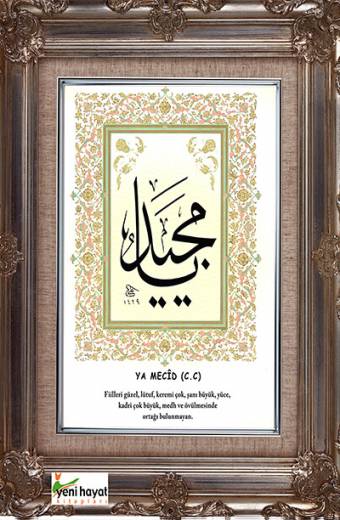 يا مجيد
١٤٢٩
YA MECÎD (C.C)
Fiilleri güzel, lütuf, keremi çok, şanı büyük, yüce,
kadri çok büyük, medh ve övülmesinde
ortağı bulunmayan.
yeni hayat
kitapları